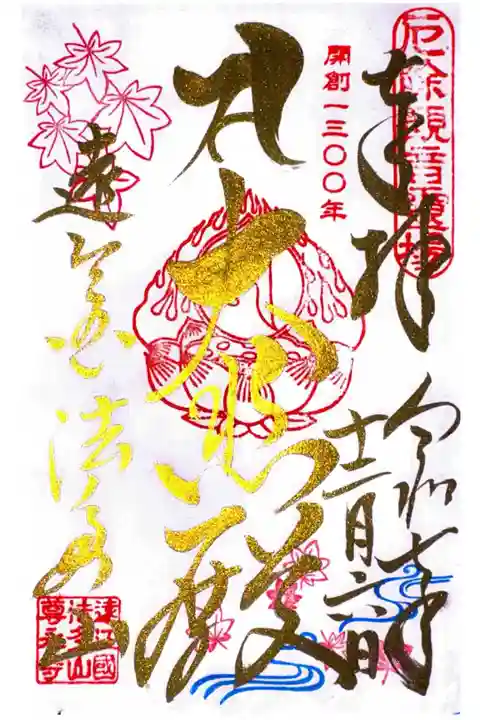 厄除観音霊場
奉拝
令和七年
開創一三〇〇年
大悲殿
遠江国法多山
遠江國
法多山
尊永寺